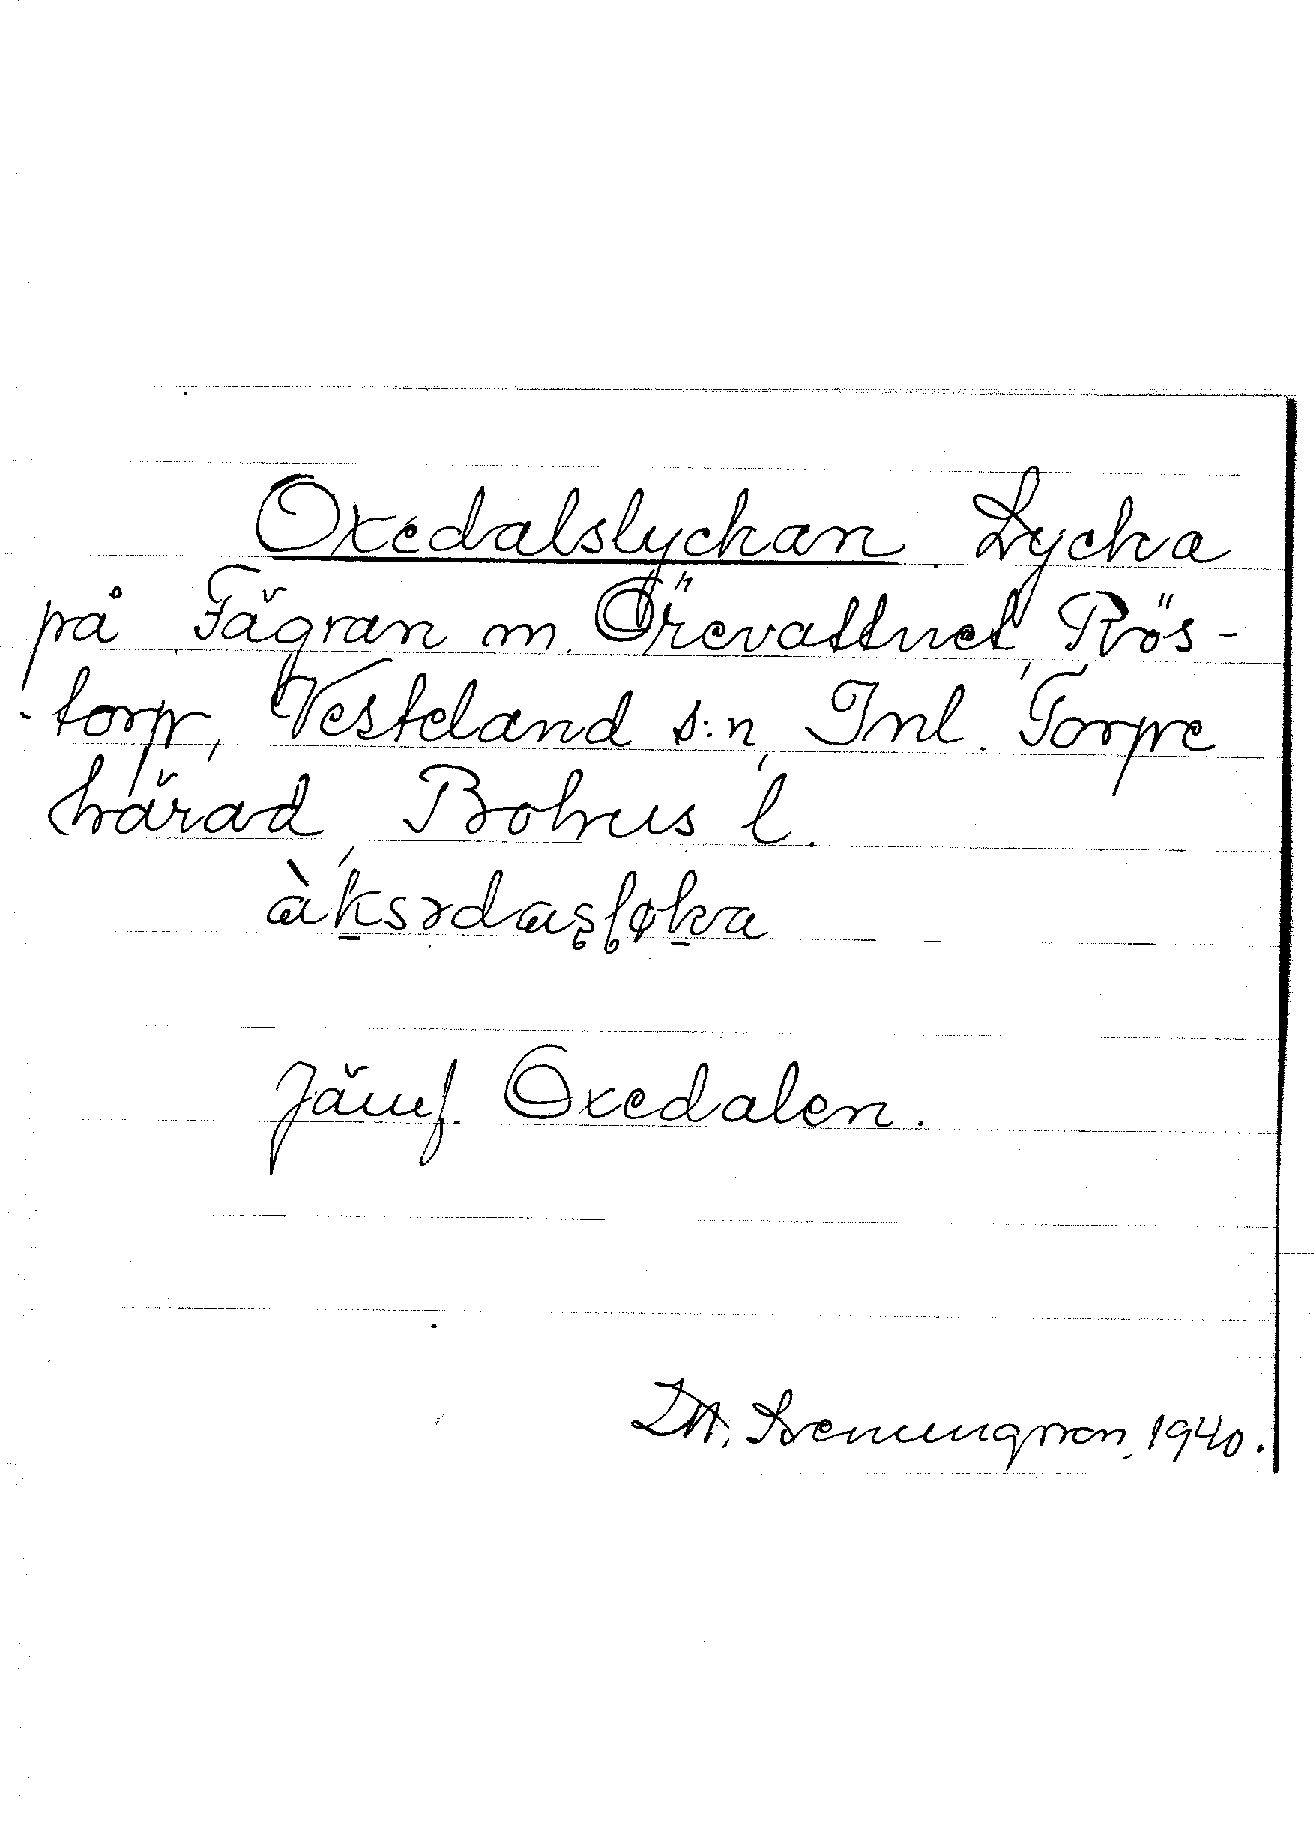 Oxedalslyckan Lycka
på Fägran m. Örevattnet, Rös-
-torp, Vesteland s:n, Inl. Torpe
härad, Bohus l.
àksədasløka
Jämf. Oxedalen.
1940.